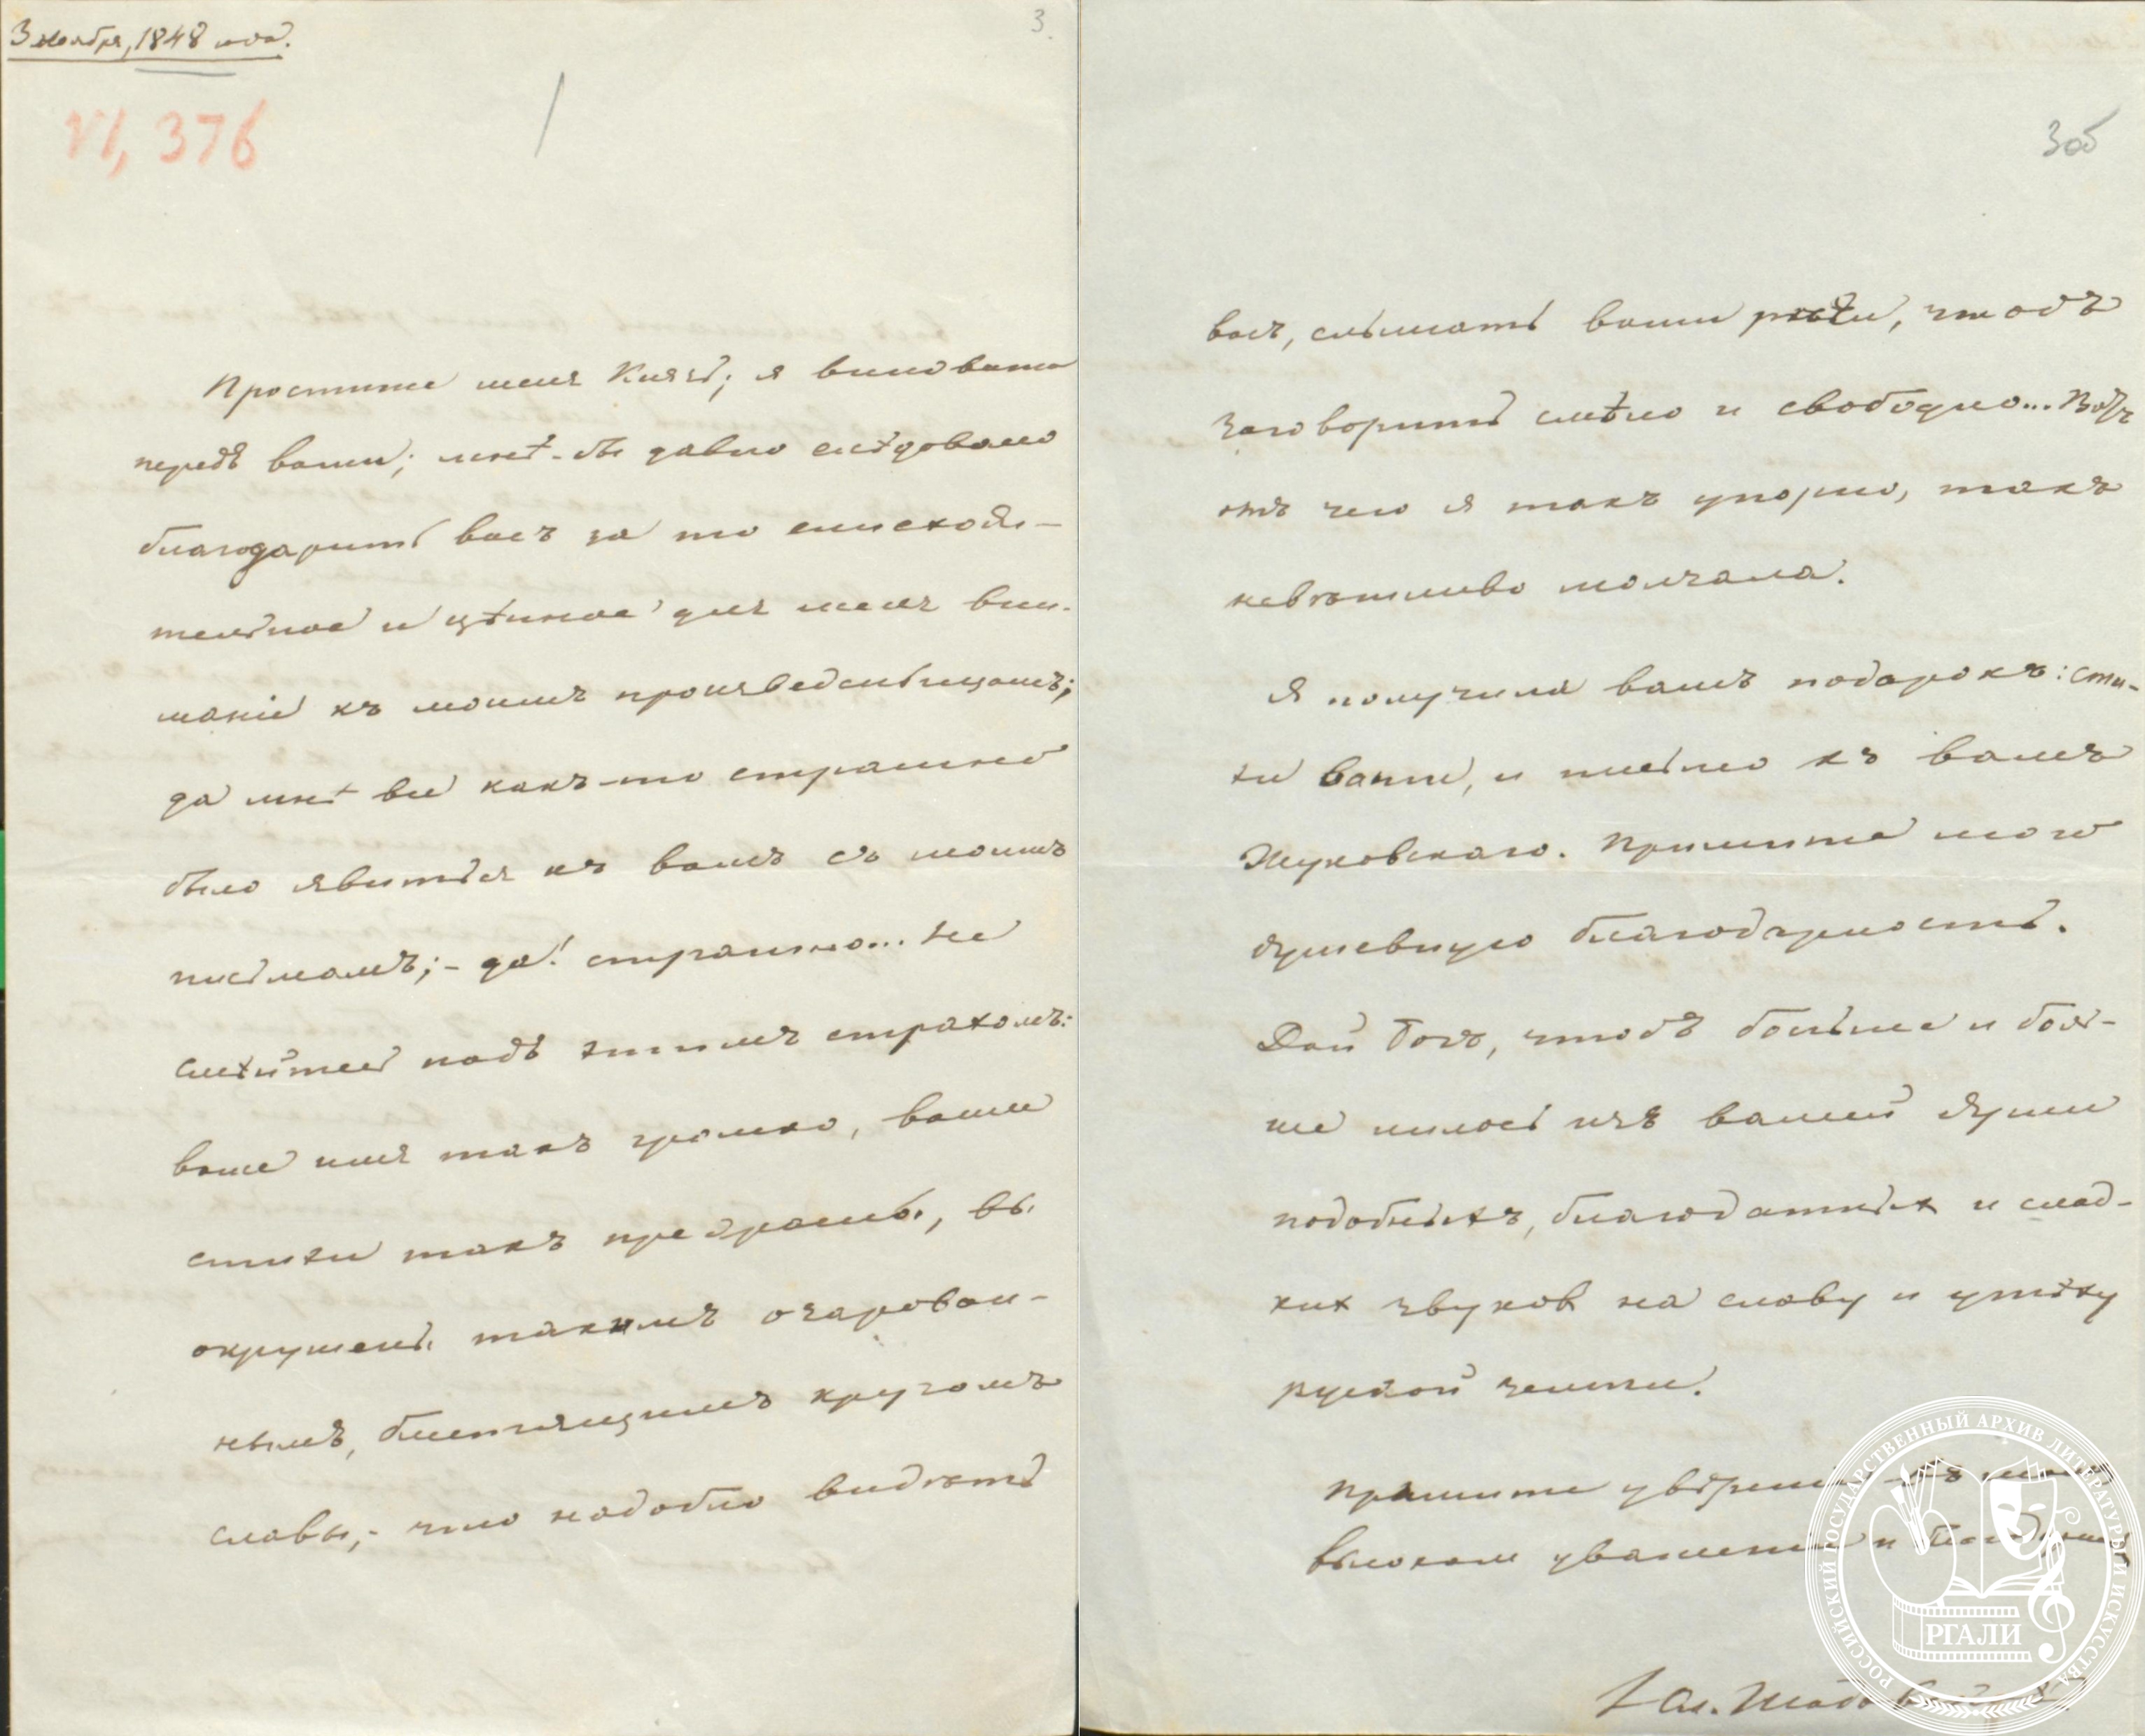 3 ноября, 1848 года.
3.
VI, 376
Простите меня Князь; я виновата
передъ вами; мнѣ-бы давно слѣдовало
благодарить васъ за то снисходи-
тельное и цѣнное для меня вни-
маніе къ моимъ произведеньицамъ;
да мнѣ все какъ-то страшно
было явиться къ вамъ съ моимъ
письмомъ; - да! страшно... Не
смѣйтесь надъ этимъ страхомъ:
ваше имя такъ громко, ваши
стихи такъ прекрасны, вы
окружены такимъ очарован-
нымъ, блестящимъ кругомъ
славы, - что надобно видѣть
3об
васъ, слышать ваши рѣчи, чтобъ
заговорить смѣло и свободно... Вотъ
отъ чего я такъ упорно, такъ
невѣжливо молчала.
Я получила вашъ подарокъ: сти-
хи ваши, и письмо къ вамъ
Жуковскаго. Примите мою
душевную благодарность.
Дай Богъ, чтобъ больше и боль-
ше лилось изъ вашей души
подобныхъ, благодатных и слад-
ких звуков на славу и утѣху
русской земли.
Примите увѣреніе въ моемъ
высоком уваженіи и
Юл. Жадовская
РОССИЙСКИЙ ГОСУДАРСТВЕННЫЙ АРХИВ ЛИТЕРАТУРЫ И ИСКУССТВА
РГАЛИ